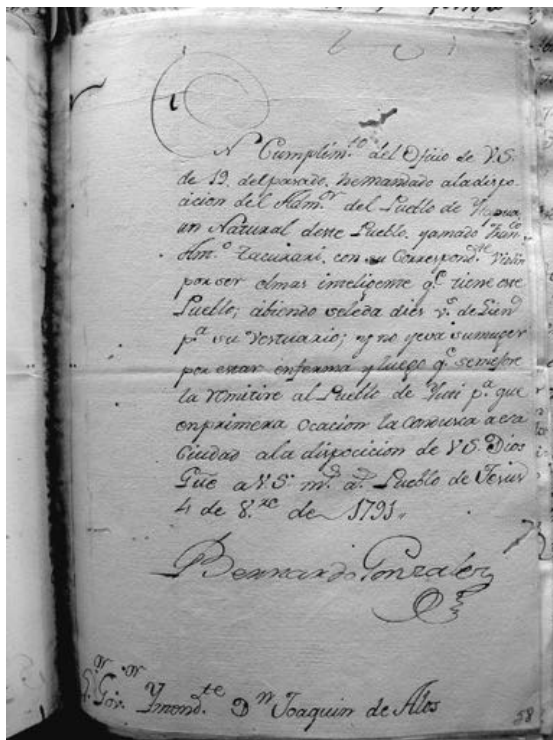 En Cumplim.to del Oficio de V.S.
de 19. del pasado, hemandado aladispo-
cicion del Adm.or del Pueblo de
un Natural deste Pueblo, yamado Fran.co
Ant.o Tacurari, con su Correspond.te Violin
por ser elmas inteligente q.e tiene este
Pueblo; abiendo seleda dies v.s de Lien.o
p.a su Vestuario; y no yeva sumuger
por estar enferma y luego q.e semejore
la remitire al Pueblo de p.a que
enprimera Ocacion la Condusca aesa
Ciudad ala dispocicion de V.S. Dios
Gue a V.S. m.s a.s Pueblo de Jesus
4 de 8.re de 1791.
Bernardo Gonzalez
S.or Gov.or Yntend.te Dn Joaquin de Alos
58